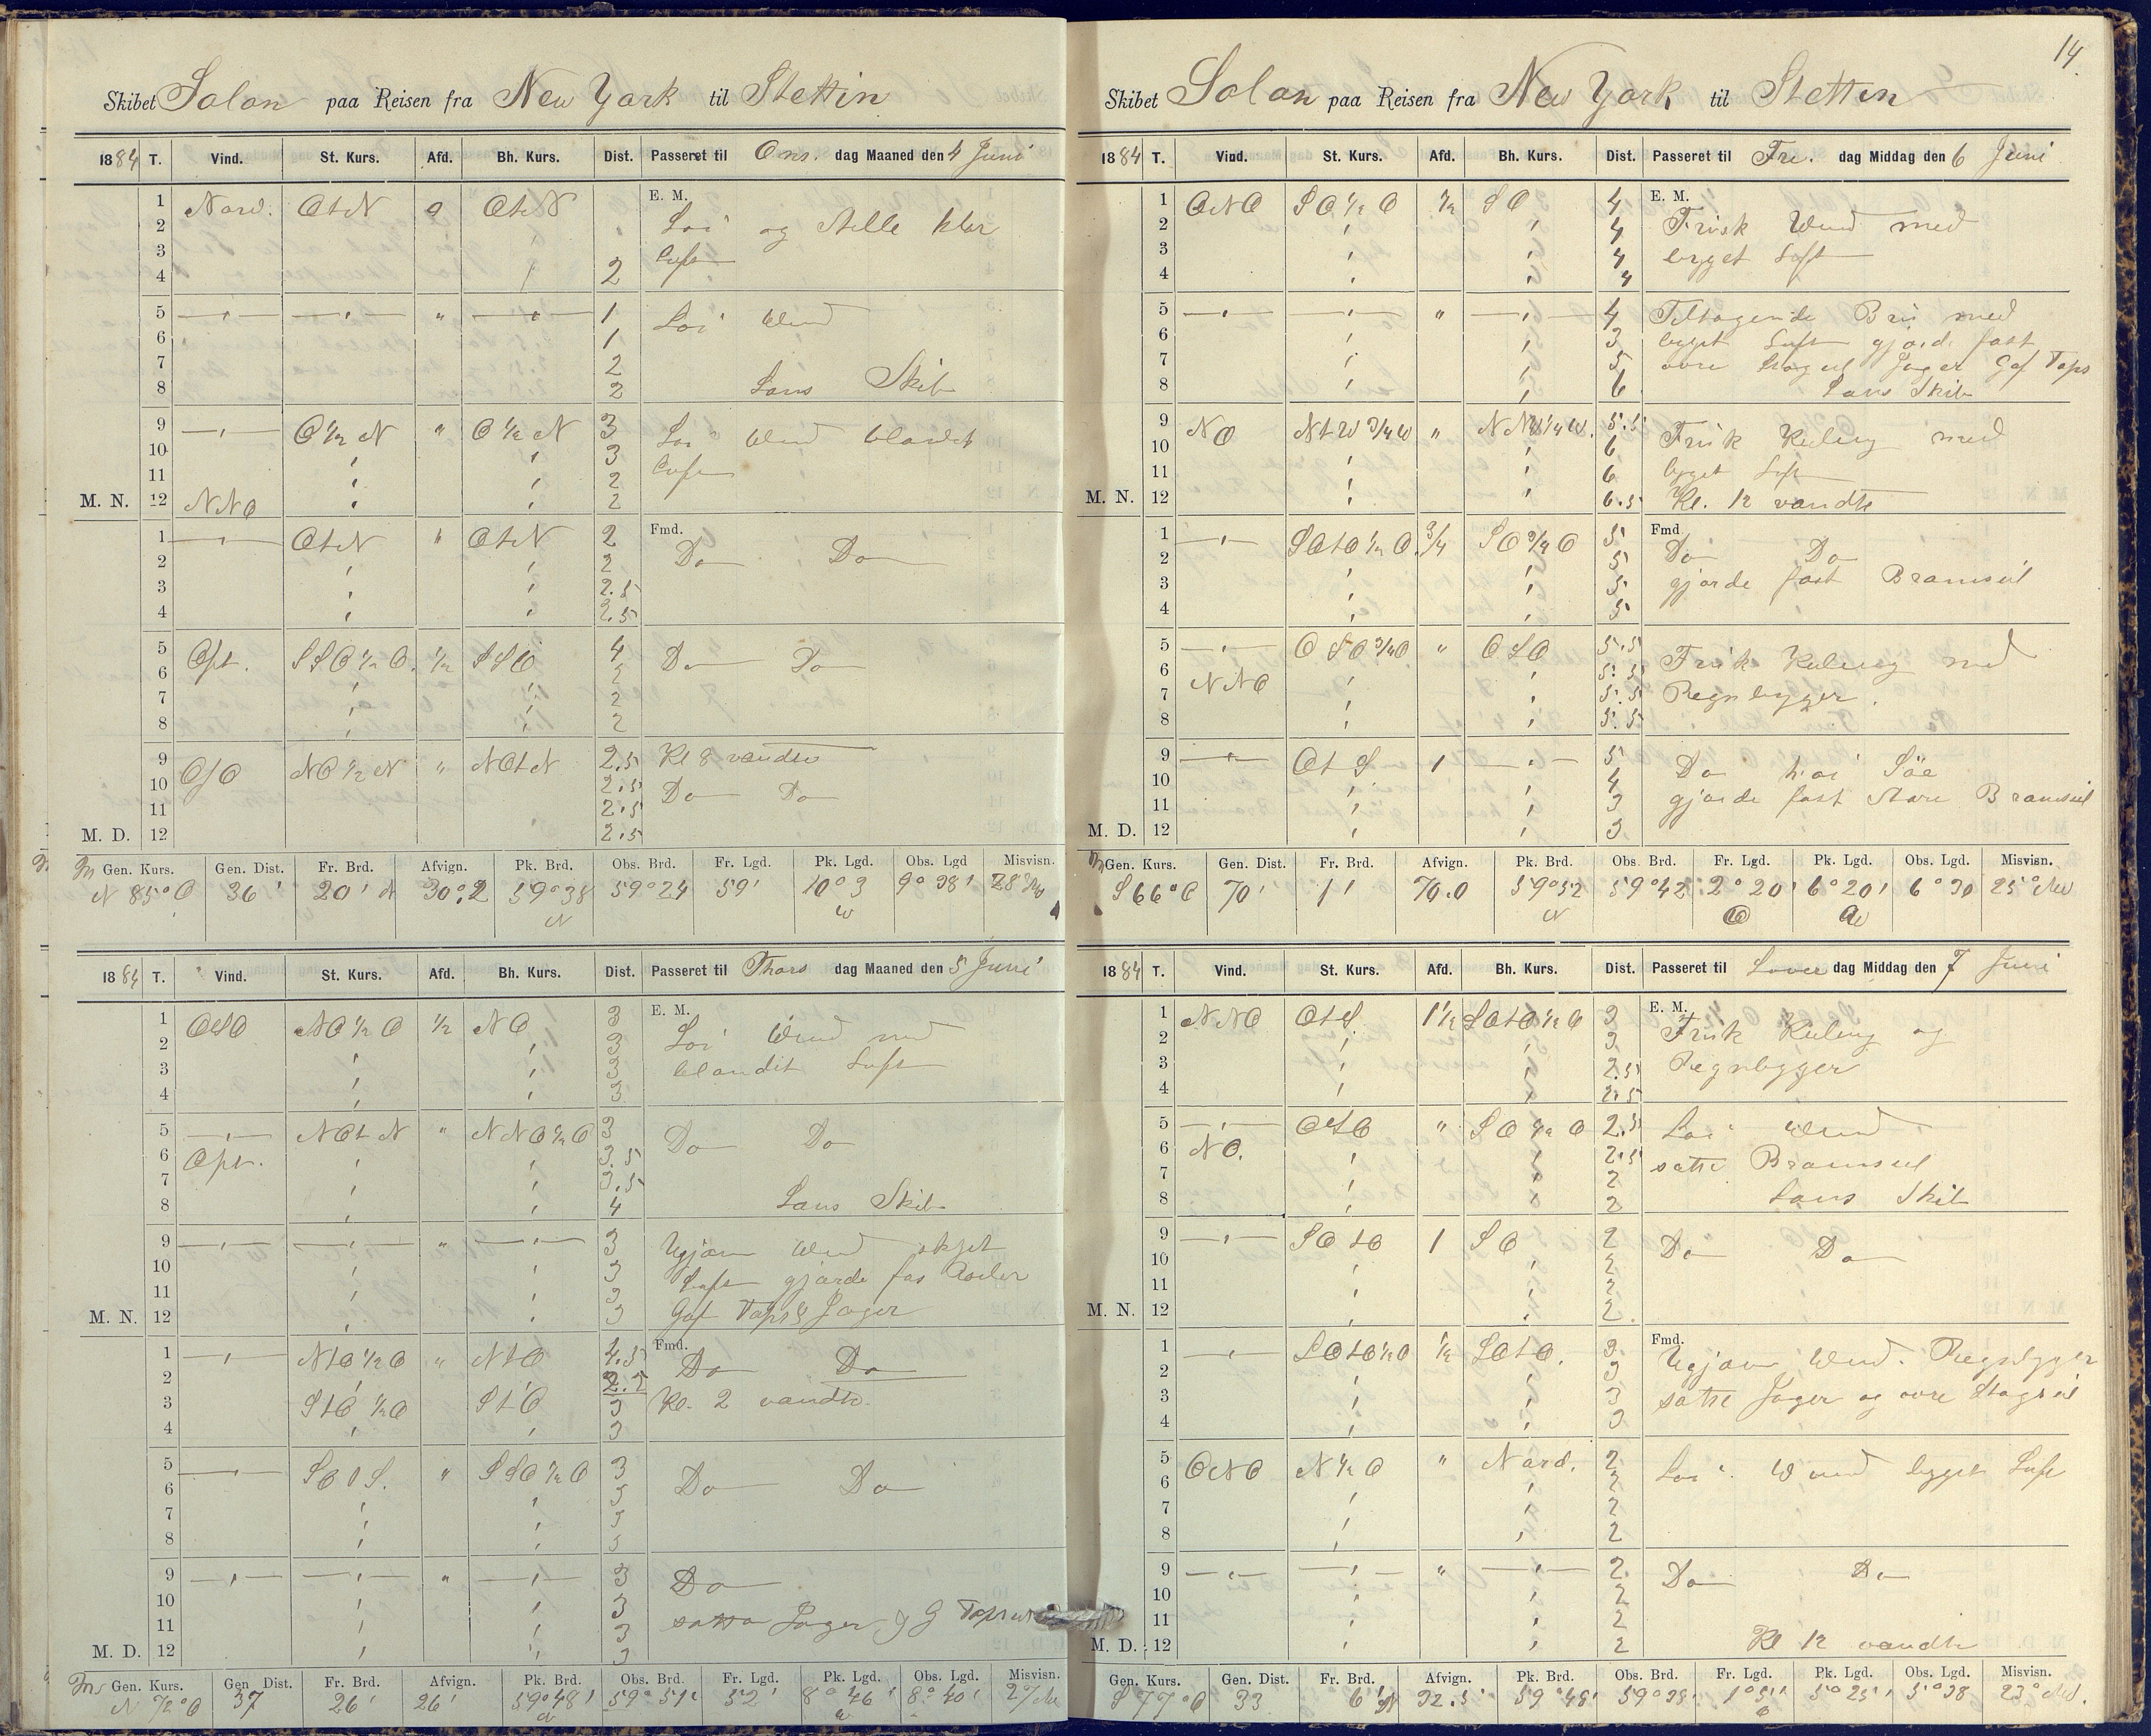 14
Skibet Solon paa Reisen fra New York til Stettin
1884 T. Vind. St. Kurs. Afd. Bh. Kurs. Dist. Passeret til Ons. dag Maaned den 4 Juni
1 Nord. OtN OtN E. M.
2 Loi og Stille klar
3 Luft
4 2
5 1 Loi Vind
6 1
7 2
8 2 Lens Skib
9 O 1/2 N " O 1/2 N 3 Loi Vind blandet
10 3 Luft
11 2
M. N. 12 NNO 2
1 OtN " OtN 2 Fmd.
2 2 Do Do
3 2.5
4 2.5
5 SSO 1/2 O. 1/2 SSO 4 Do Do
6 2
7 2
8 2
9 OSO NO 1/2 N " NOtN 2.5 Kl 8 vendte
10 2.5 Do Do
11 2.5
M. D. 12 2.5
Gen. Kurs. Gen. Dist. Fr. Brd. Afvign. Pk. Brd. Obs. Brd. Fr. Lgd. Pk. Lgd. Obs. Lgd Misvisn.
N 85° O 36' 20' 30.2 59°38 N 59°24 59' 10°3 W 9°38' 28° NW
1884 T. Vind. St. Kurs. Afd. Bh. Kurs. Dist. Passeret til Thors dag Maaned den 5 Juni
1 OSO NO 1/2 O 1/2 NO 3 E. M.
2 3 Loi Vind med
3 3 blandet Luft
4 3
5 NOtN " NNO 1/2 O 3 Do Do
6 3.5
7 3.5
8 4 Lens Skib
9 " 3 Ugjevn Vind skyet
10 3 Luft gjorde fas
11 3
M. N. 12 3 Gaf Tops & Jager
1 NtO 1/2 O " NtO 4.5 Fmd.
2 2.5 Do Do
3 StO 1/2 O StO 3 Kl. 2 vandte
4 3
5 SOtS. " SSO 1/2 O 3
6 3 Do Do
7 3
8 3
9 " 3 Do
10 3 satte Jager og G Topseil
11 3
M. D. 12 3
Gen. Kurs. Gen Dist. Fr. Brd. Afvign. Pk. Brd. Obs. Brd. Fr. Lgd. Pk. Lgd. Obs. Lgd. Misvisn.
N 72° O 37 26' 26' 59°48' N 59°51' 52' 8°46' W 8°40' 27° NW
Skibet Solon paa Reisen fra New York til Stettin
1884 T. Vind. St. Kurs. Afd. Bh. Kurs. Dist. Passeret til Fre. dag Middag den 6 Juni
1 ONO SO 1/2 O 1/2 SO 4 E. M.
2 4 Frisk Vind med
3 4 byget Luft
4 4
5 " 4 Tiltagende Bris med
6 3 byget Luft gjord. fast
7 5 øvre Stagseil Jager Gaf Tops
8 6 Lens Skib
9 NO NtW 3/4 W " NNW 1/4 W. 5.5 Frisk Kuling med
10 6
11 6 byget Luft
M. N. 12 6.5 Kl. 12 vandte
1 SOtO 1/2 O. 3/4 SO 3/4 O 5 Fmd.
2 5 Do Do
3 5 gjorde fast Bramseil
4 5
5 OSO 3/4 O " OSO 5.5 Frisk Kuling med
6 NNO 5.5
7 5.5 Regnbyger.
8 5.5
9 OtS 1 5 Do høi Söe
10 4 gjorde fast Store Bramseil
11 3
M. D. 12 3
Gen. Kurs. Gen. Dist. Fr. Brd. Afvign. Pk. Brd. Obs. Brd. Fr. Lgd. Pk. Lgd. Obs. Lgd. Misvisn.
S 66° O 70' 1' 70.0 59°52 N 59°42 2°20 O 6°20' W 6°30 25° NW
1884 T. Vind. St. Kurs. Afd. Bh. Kurs. Dist. Passeret til Löver dag Middag den 7 Juni
1 NNO OtS. 1 1/2 SOtO 1/2 O 3 E. M.
2 3 Frisk Kuling og
3 2.5 Regnbyger
4 2.5
5 OSO " SO 1/2 O 2.5 Loi Vind
6 NO. 2.5 satte Bramseil
7 2
8 2 Lens Skib
9 SOtO 1 SO 2 Do Do
10 2
11 2
M. N. 12 2.
1 SOtO 1/2 O 1/2 SOtO. 3 Fmd.
2 3 Ugjevn Vind. Regnbyger
3 3 satte Jager og øvre Stagseil
4 3
5 ONO N 1/2 O " Nord. 2 Loi Vind byget Luft
6 2
7 2
8 2
9 " 2. Do Do
10 2
11 2
M. D. 12 2 Kl 12 vandte
Gen. Kurs. Gen. Dist. Fr. Brd. Afvign. Pk. Brd. Obs. Brd. Fr. Lgd. Pk. Lgd. Obs. Lgd. Misvisn.
S 77° O 33 6' 32.5 59°48' 59°38' 1°5' O 5°25' 5°38 23° NW.